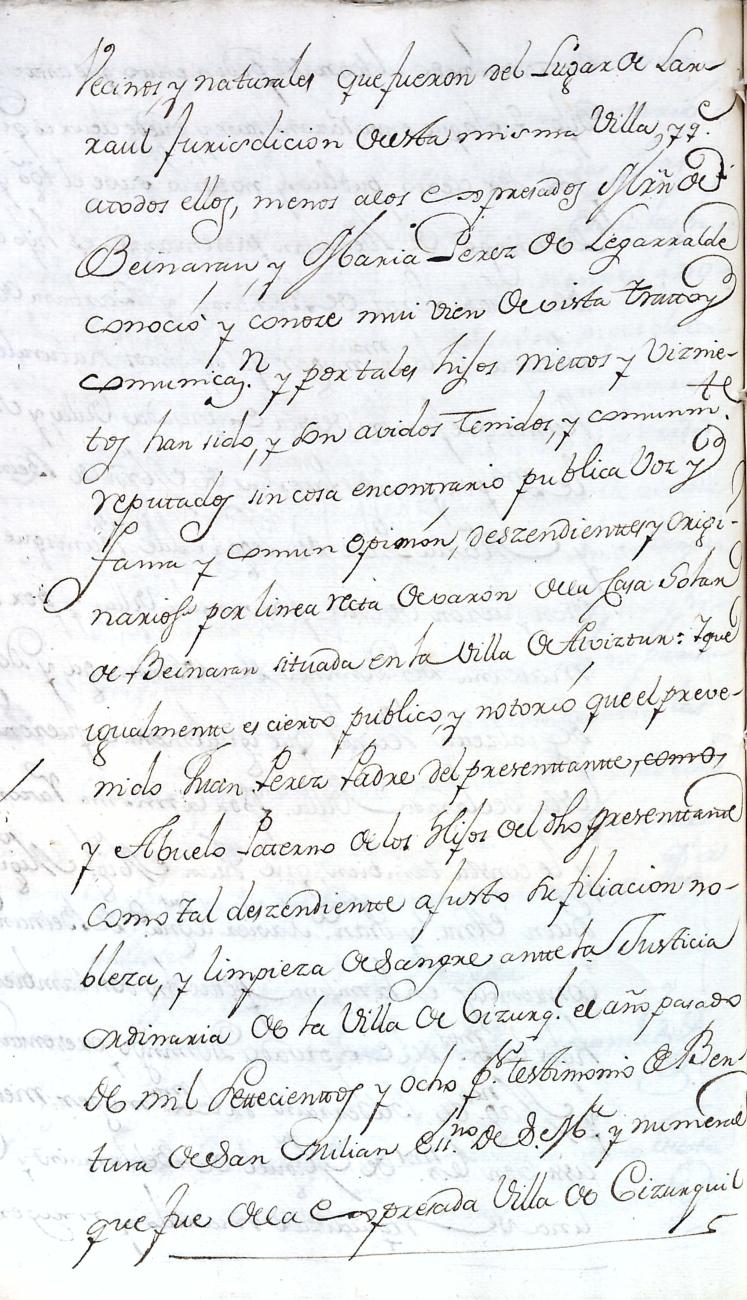 Vecinos, y naturales que fueron del Lugar de Lar-
raul Jurisdicion de esta misma Villa, y q.e
atodos ellos, menos alos expresados Mrñ de
Beinaran y Maria Perez de Legarralde
conoció y conoze mui vien de vista tratto y
comunicaz.n y por tales hijos niettos y viznie-
tos han sido, y son avidos tenidos, y comunm.te
reputados sin cosa encontrario publica voz y
fama y comun opinión, deszendientes y origi-
narios por linea recta de varon de la Casa Solar
de Beinaran situada en la Villa de Alviztur: Y que
igualmente es cierto publico, y notorio que el preve-
nido Juan Perez Padre del presenttantte, como,
y Abuelo Paterno de los Hijos del dho presenttante
como tal deszendientte ajusto su filiacion no-
bleza, y limpieza de sangre antte la Justicia
ordinaria de la Villa de Cizurq.l el año pasado
de mil settecienttos y ocho p.r testimonio de Ben-
tura de San Milian Ess.no de S. M. y numeral
que fue de la expresada Villa de Cizurquil